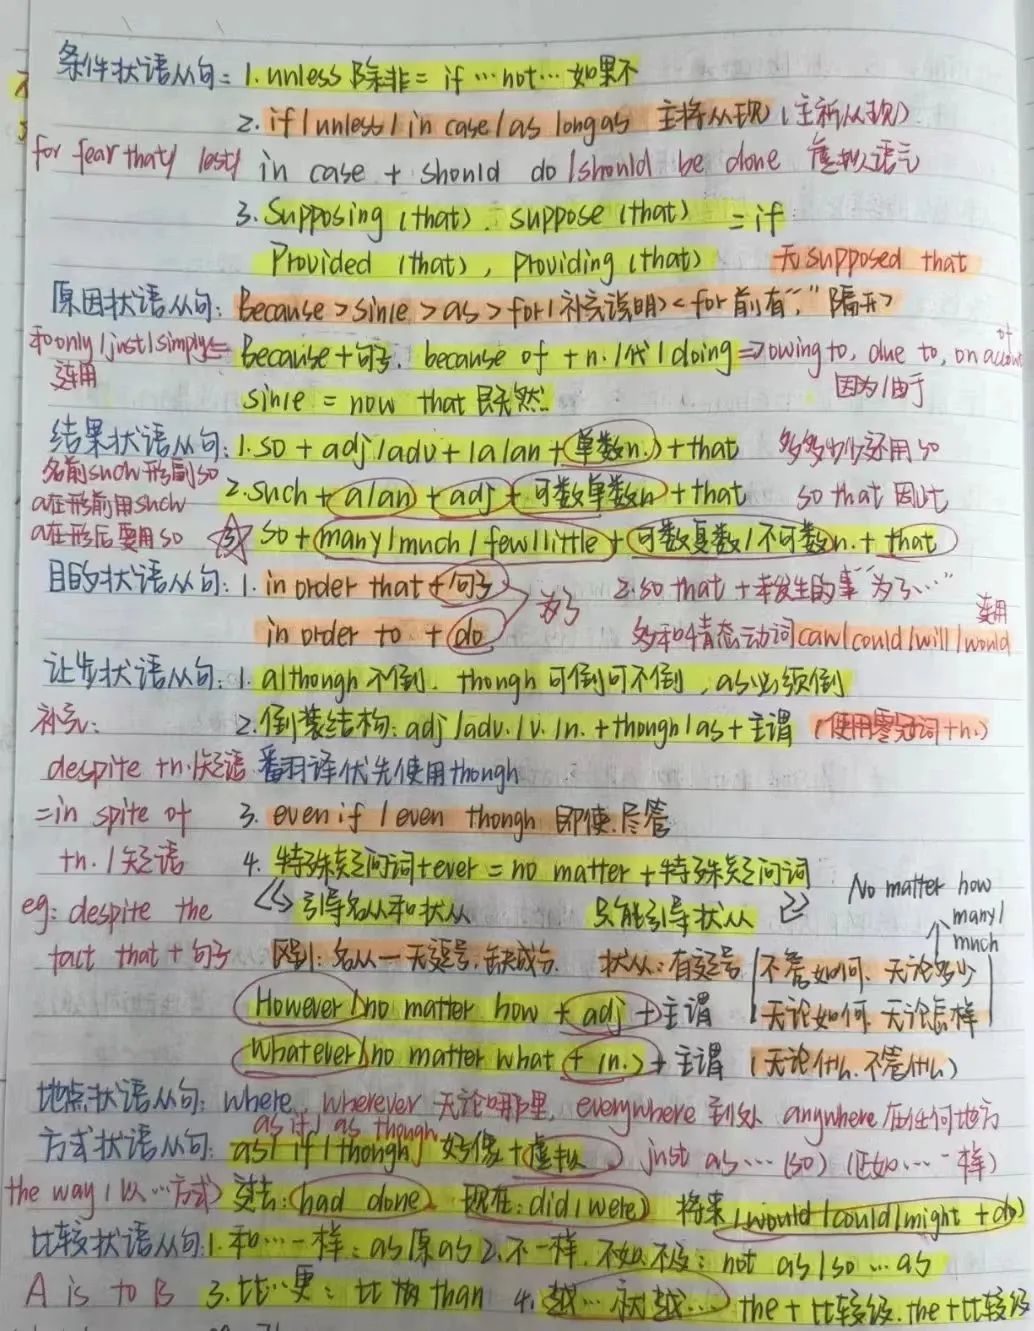 条件状语从句: 1. unless 除非 = if … not … 如果不
2. if / unless / in case / as long as 主将从现 (主祈从现)
for fear that / lest / in case + should do / should be done 虚拟语气
3. Supposing (that). suppose (that) = if
Provided (that), providing (that) 无 supposed that
原因状语从句: Because > since > as > for (补充说明) < for 前有“,”隔开>
和only / just / simply because + 句子. because of + n. / 代 / doing => owing to, due to, on account of
连用 since = now that 既然. 因为 / 由于
结果状语从句: 1. so + adj / adv + (a/an + 单数n.) + that 多多少少还用so
名前such 形副so
2. such + a/an + adj + 可数单数n + that so that 因此
a在形前用such
a在形后要用so ③ so + many / much / few / little + 可数复数 / 不可数n. + that
目的状语从句: 1. in order that + 句子 2. so that + 未发生的事“为了…”
in order to + do 为了 多和情态动词can / could / will / would 连用
让步状语从句: 1. although 不倒. though 可倒可不倒, as必须倒
补充: 2. 倒装结构: adj / adv. / v. / n. + though / as + 主谓 (使用零冠词+n.)
despite + n. / 短语 翻译优先使用though
= in spite of 3. even if / even though 即使.尽管
+n. / 短语 4. 特殊疑问词+ever = no matter + 特殊疑问词
No matter how many / much
eg: despite the 引导名从和状从 只能引导状从
fact that + 句子 区别: 名从一无逗号, 缺成分. 状从: 有逗号 不管如何. 无论多少
However / no matter how + adj + 主谓 无论如何. 无论怎样
Whatever / no matter what + (n.) + 主谓 (无论什么. 不管什么)
地点状语从句: where, wherever 无论哪里, everywhere 到处 anywhere 在任何地方
as if / as though
方式状语从句: as / if / though 好像 + 虚拟 just as … (so) (正如 … 一样)
the way (以…方式) 过去: (had done) 现在: did / were) 将来 (would / could / might + do)
比较状语从句: 1. 和…一样: as 原 as 2. 不一样. 不如.不及: not as / so … as
A is to B 3. 比…更: 比 than 4. 越…就越… the + 比较级. the + 比较级